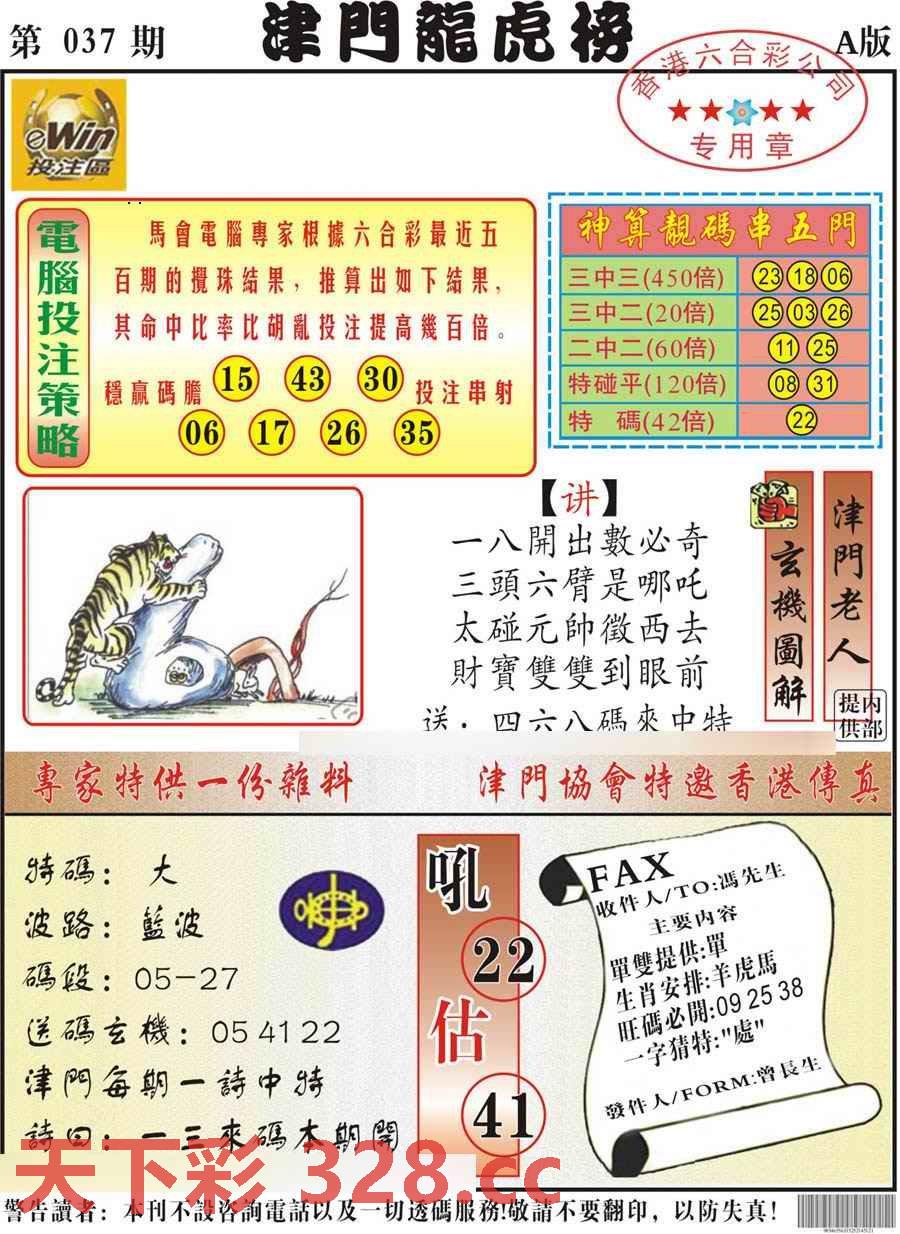 第 037 期
津門龍虎榜
A版
香港六合彩公司
专用章
eWin
投注區
電腦投注策略
馬會電腦專家根據六合彩最近五
百期的攪珠結果，推算出如下結果，
其命中比率比胡亂投注提高幾百倍。
穩贏碼膽 15 43 30 投注串射
06 17 26 35
神算靚碼串五門
三中三(450倍) 23 18 06
三中二(20倍) 25 03 26
二中二(60倍) 11 25
特碰平(120倍) 08 31
特 碼(42倍) 22
【讲】
一八開出數必奇
三頭六臂是哪吒
太碰元帥徵西去
財寶雙雙到眼前
送：四六八碼來中特
玄機圖解
津門老人
内部提供
專家特供一份雜料
津門協會特邀香港傳真
特碼：大
波路：藍波
碼段：05-27
送碼玄機：05 41 22
津門每期一詩中特
詩曰：一三來碼本期開
吼
22
估
41
FAX
收件人/TO:馮先生
主要内容
單雙提供:單
生肖安排:羊虎馬
旺碼必開:09 25 38
一字猜特:"處"
發件人/FORM:曾長生
天下彩 328.cc
警告讀者：本刊不設咨詢電話以及一切透碼服務!敬請不要翻印，以防失真!